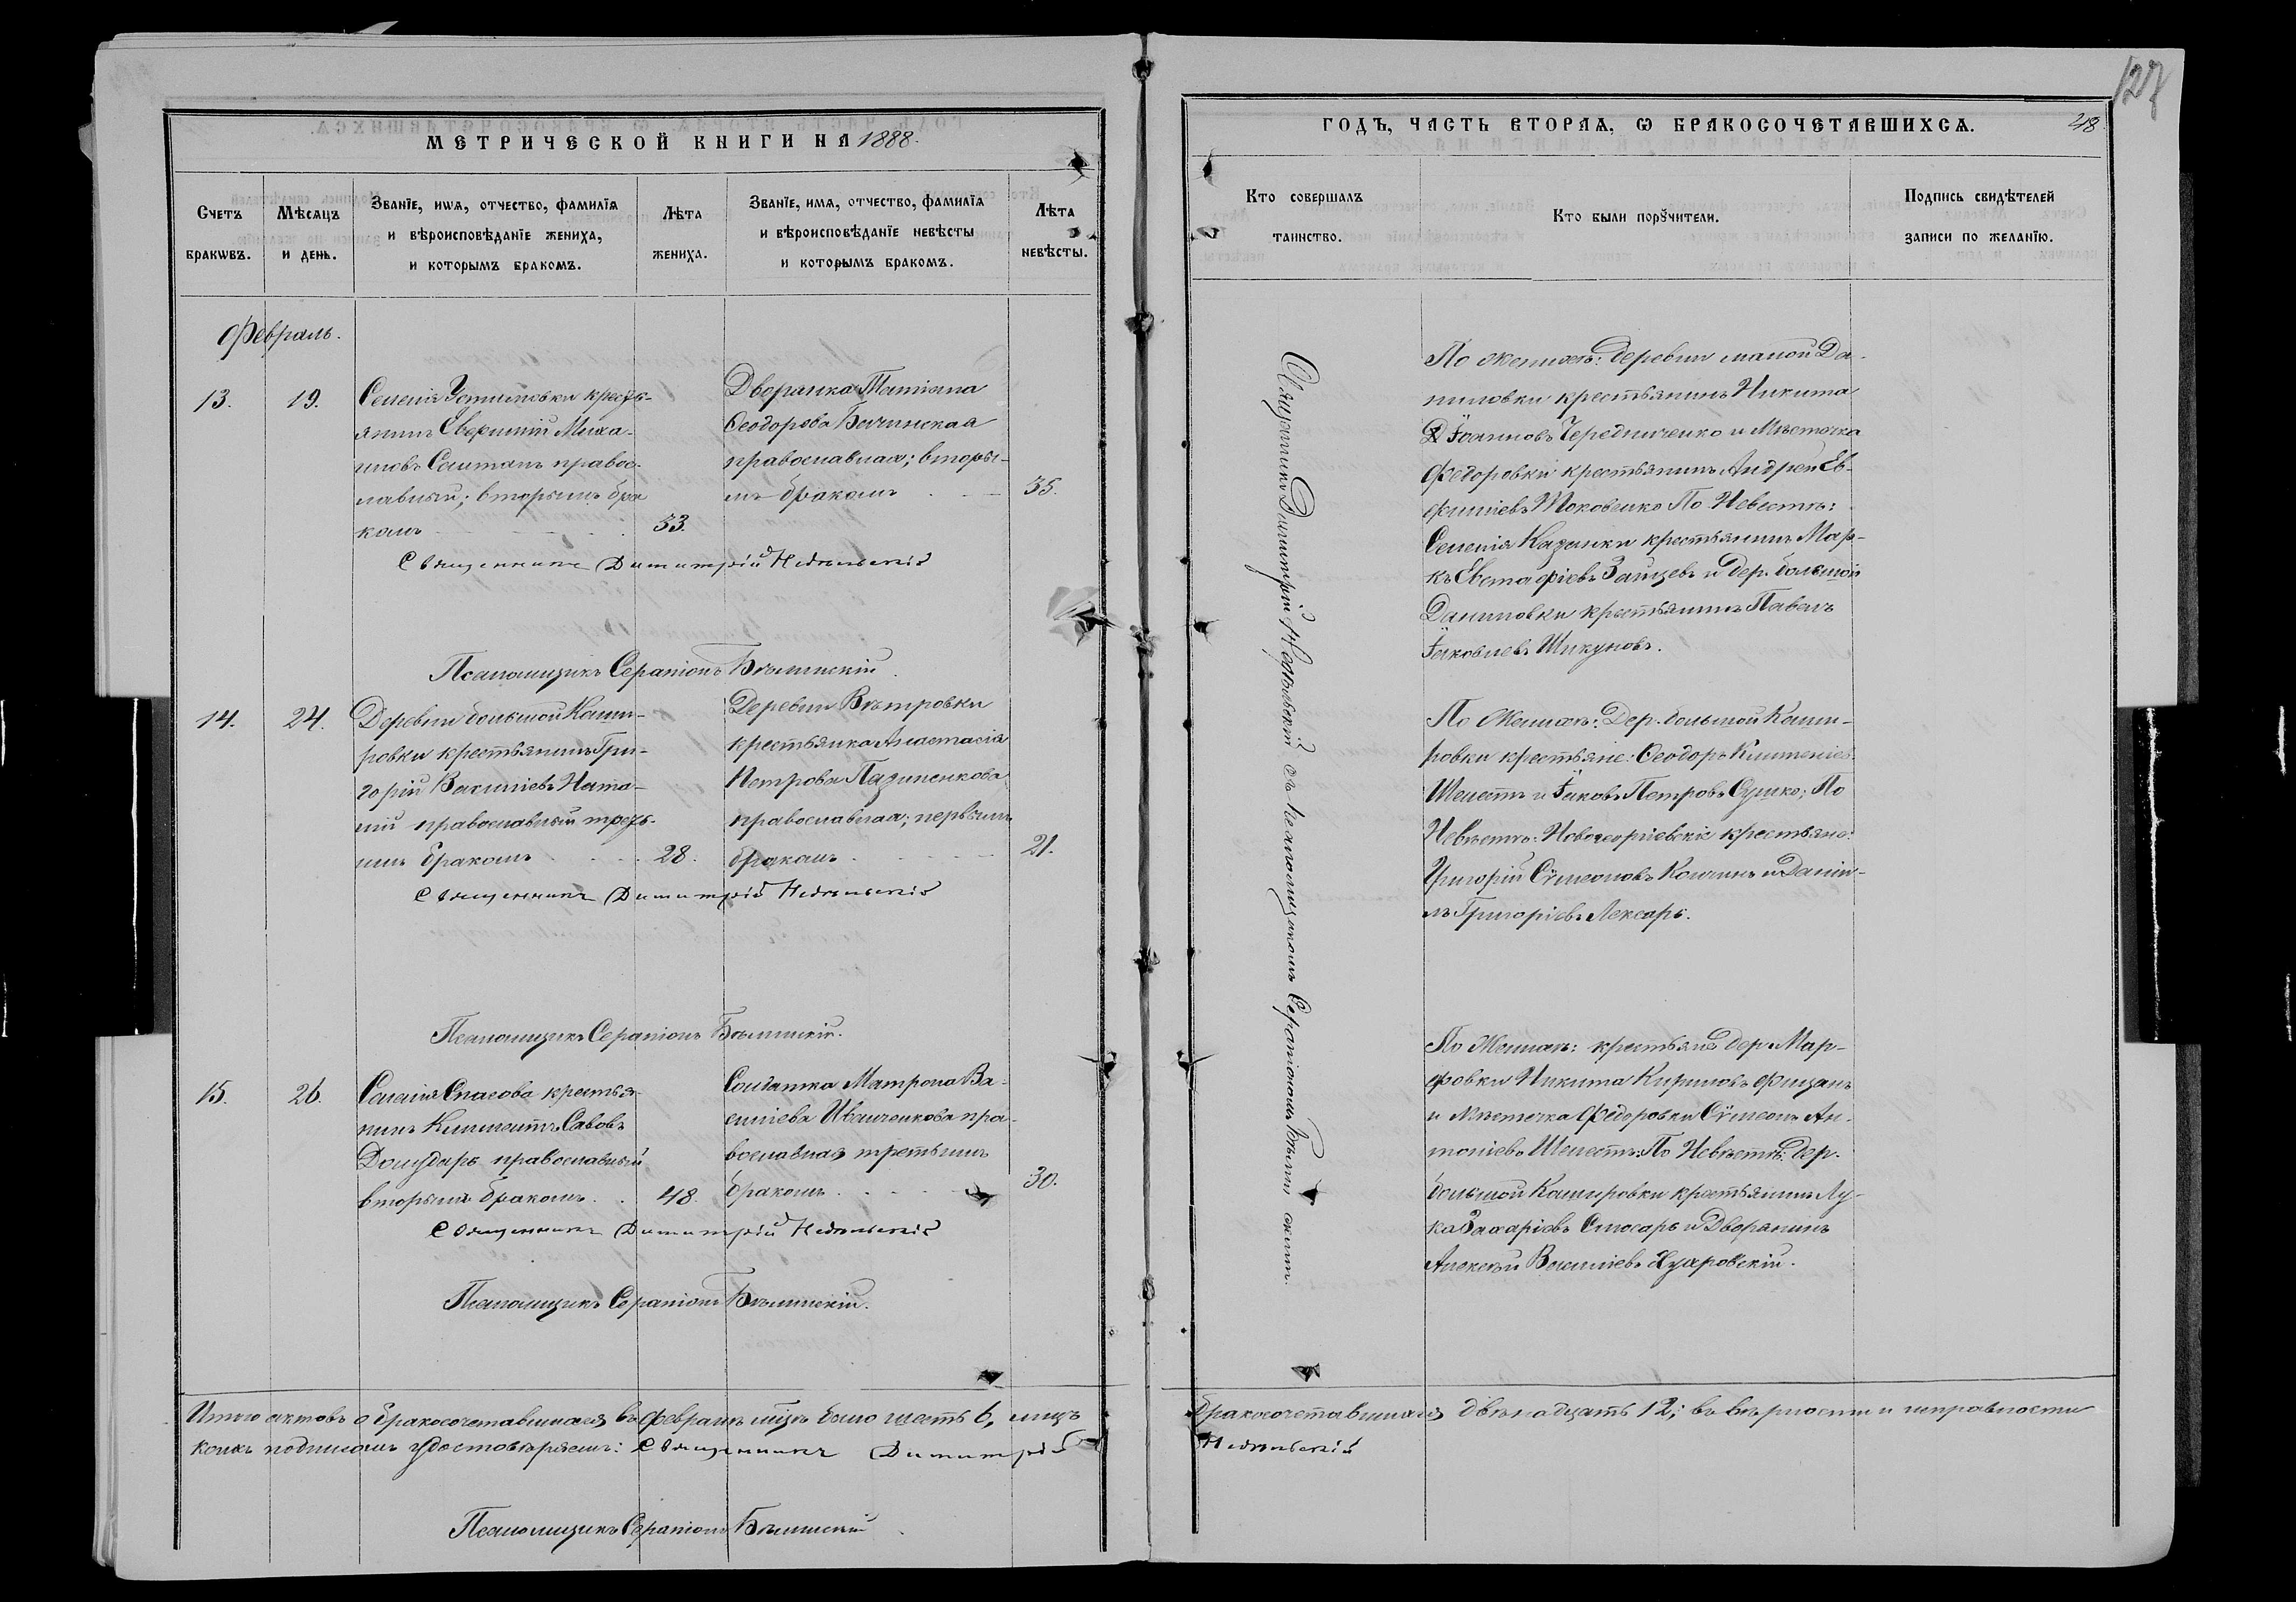 МЕТРИЧЕСКОЙ КНИГИ НА 1888.
Счетъ браковъ.
Мѣсяцъ и день.
Званїе, имя, отчество, фамилїя
и вѣроисповѣданїе жениха,
и которымъ бракомъ.
Лѣта
жениха.
Званїе, имя, отчество, фамилїя
и вѣроисповѣданїе невѣсты
и которымъ бракомъ.
Лѣта
невѣсты.
Февраль.
13.
19.
Селенія Устиновки кресть-
янинъ Михаи-
ловъ правос-
лавный; вторымъ бра
комъ
33.
Дворянка Татіана
Ѳеодорова
православная; вторы-
мъ бракомъ
35.
Священникъ Димитрій Недѣльскій
Псаломщикъ Серапіонъ Бѣлинскій.
14.
24.
Деревни большой Каши-
ровки крестьянинъ Гри-
горій Василіевъ
православный треть-
имъ бракомъ
28.
Деревни Вѣтровки
крестьянка Анастасія
Петрова
православная; первымъ
бракомъ
21.
Священникъ Димитрій Недѣльскій
Псаломщикъ Серапіонъ Бѣлинскій.
15.
26.
Селенія Спасова крестья-
нинъ Климентъ Савовъ
православный
вторымъ бракомъ
48.
Солдатка Матрона Ва-
силіева Иванченкова пра-
вославная третьимъ
бракомъ
30.
Священникъ Димитрій Недѣльскій
Псаломщикъ Серапіонъ Бѣлинскій.
Итого актовъ о бракосочетавшихся въ февралѣ мцѣ было шесть 6, лицъ
коихъ подписомъ удостовѣряемъ: Священникъ Димитрій
Псаломщикъ Серапіонъ Бѣлинскій
127
ГОДЪ, ЧАСТЬ ВТОРАЯ, Ѡ БРАКОСОЧЕТАВШИХСЯ.
48.
Кто совершалъ
таинство.
Кто были порꙋчители.
Подпись свидѣтелей
записи по желанїю.
Священникъ Димитрій Недѣльскій съ псаломщикомъ Серапіономъ Бѣлинскимъ.
По Женихѣ: деревни малой Да-
ниловки крестьянинъ Никита
Іоанновъ Чередниченко и Мѣстечка
Федоровки крестьянинъ Андрей Ев-
фиміевъ По Невѣстѣ:
Селенія Казанки крестьянинъ Мар-
къ Евстафіевъ Зайцевъ и дер. большой
Даниловки крестьянинъ Павелъ
Іаковлевъ Шикуновъ.
По Женихѣ: Дер. большой Каши-
ровки крестьяне: Ѳеодоръ Климентіевъ
Шелестъ и Іаковъ Петровъ Сушко; По
Невѣстѣ: Новогеоргіевскіе крестьяне:
Григорій Сѵмеоновъ и Даніи-
лъ Григоріевъ Лексарь.
По Женихѣ: крестьяне дер. Мар-
фовки Никита Кириловъ
и Мѣстечка Федоровки Сѵмеонъ Ан-
тоніевъ Шелестъ: По Невѣстѣ: дер.
большой Кашировки крестьянинъ Лу-
ка Захаріевъ Слюсарь и Дворянинъ
Алексѣй Василіевъ
бракосочетавшихся двѣнадцать 12; въ вѣрности и исправности
Недѣльскій